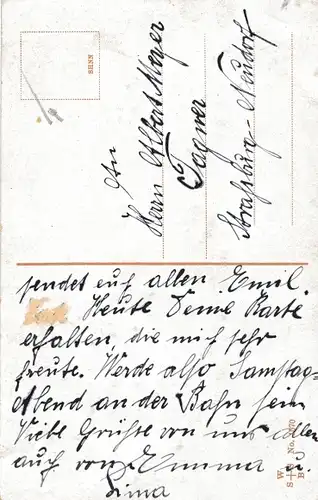 An
Herrn Albert Meyer
Wagner
Straßburg-Neudorf
sendet euch allen Emil.
Heute Deine Karte
erhalten, die mich sehr
freute. Werde also Samstag-
Abend an der Bahn sein
Viele Grüße von uns allen
auch von Emma u.
Lina
W B
S S No.